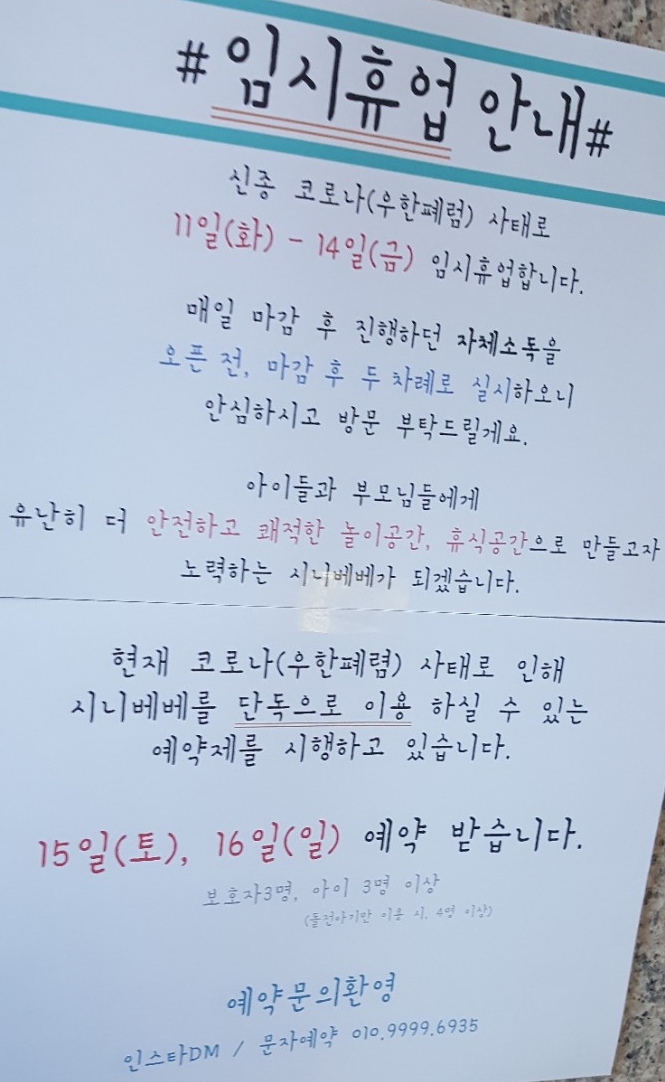 #임시휴업 안내#
신종 코로나(우한폐렴) 사태로
11일(화) - 14일(금) 임시휴업합니다.
매일 마감 후 진행하던 자체소독을
오픈 전, 마감 후 두 차례로 실시하오니
안심하시고 방문 부탁드릴게요.
아이들과 부모님들에게
유난히 더 안전하고 쾌적한 놀이공간, 휴식공간으로 만들고자
노력하는 시니베베가 되겠습니다.
현재 코로나(우한폐렴) 사태로 인해
시니베베를 단독으로 이용 하실 수 있는
예약제를 시행하고 있습니다.
15일(토), 16일(일) 예약 받습니다.
보호자3명, 아이 3명 이상
(돌전아기만 이용 시, 4명 이상)
예약문의환영
인스타DM / 문자예약 010.9999.6935